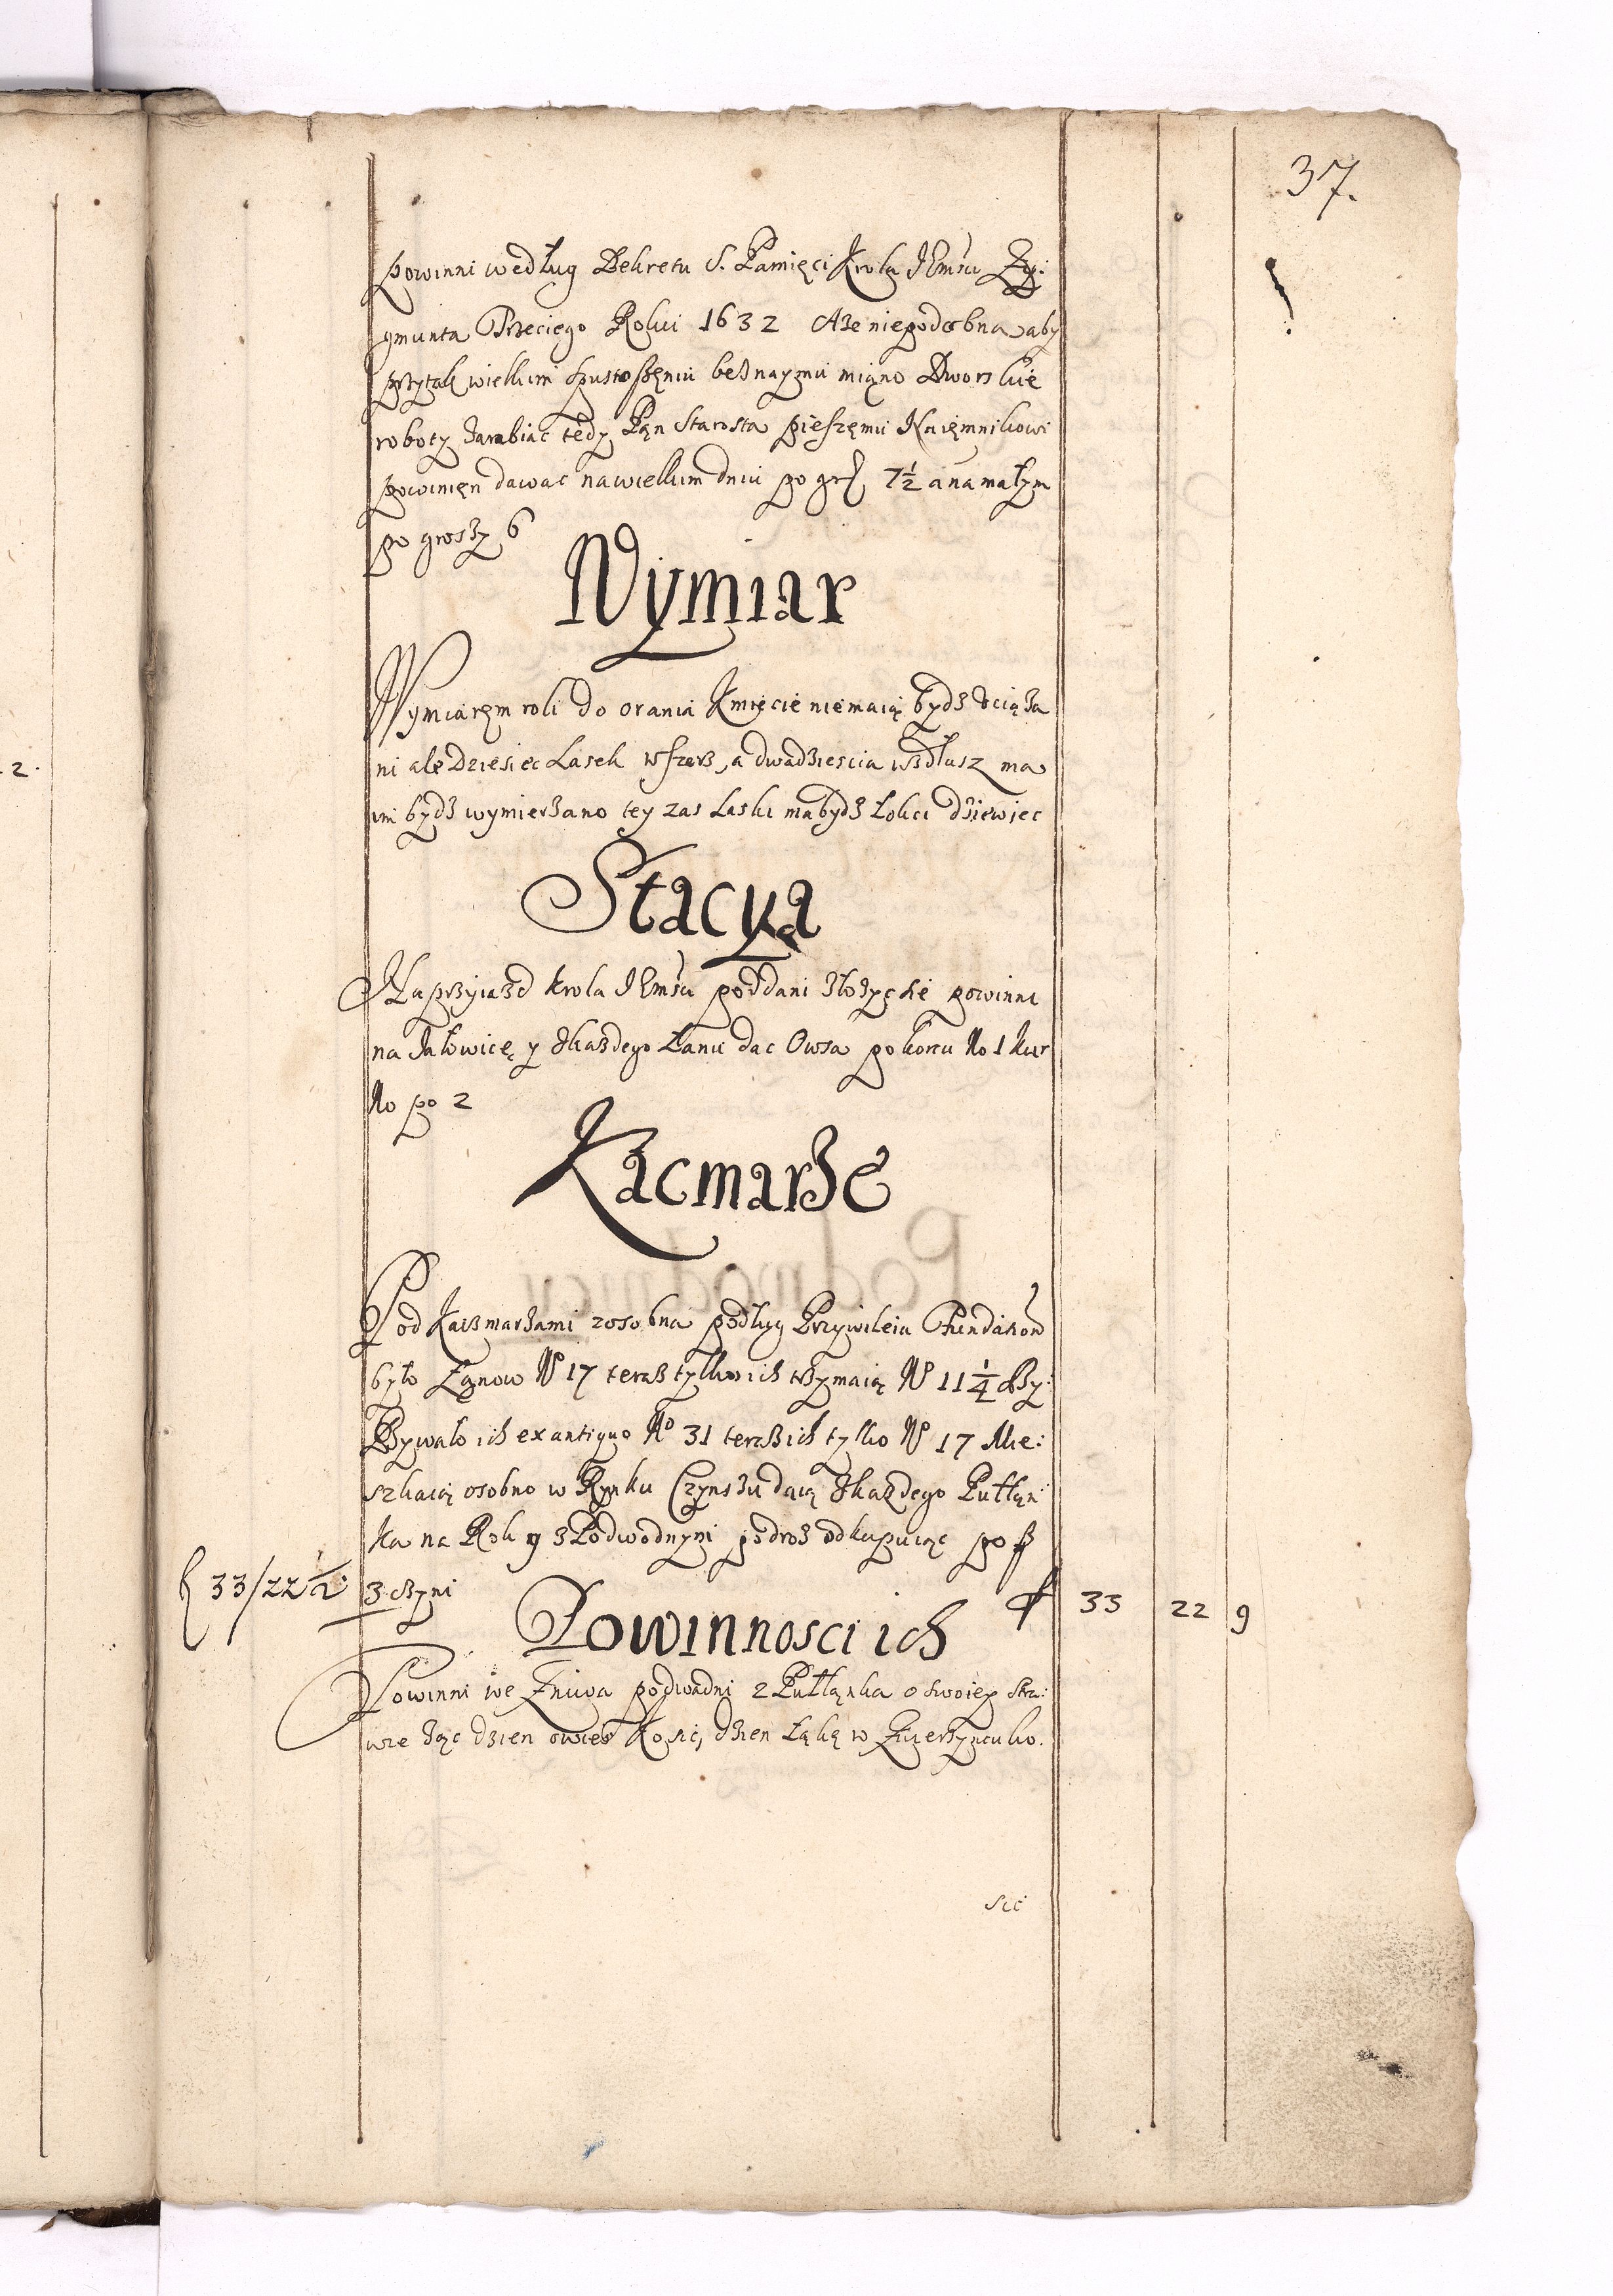 37.
powinni według Dekretu S. Pamięci Krola JEmsu Zy:
gmunta Trzeciego Roku 1632 Aze niepodobna aby
przytak wielkim spustoszęniu beznaymu miąno Dworskie
roboty zarabiac tedy Pąn Starosta pieszęmu Naięmnikowi
powinięn dawac nawielkim dniu po gr 7½ anamałym
po groszy 6
Wymiar
Wymiaręm roli do orania Kmięcie niemaią bydz ociąza
ni ale Dziesiec Lasek wszerz, a dwadziescia wzdłusz ma
im bydz wymierzano tey zas Laski mabydz Łokci dziewiec
Stacya
Naprzyiazd krola JEmsu poddani złozyc sie powinni
na Jałowicę y zkazdego Łanu dac Owsa po korcu No 1 kur
No po 2
Kacmarze
Pod Kaczmarzami zosobna podług Przywileiu Fundatiow
było Łąnow No 17 teraz tylko ich trzymaią No 11¼
Bywało ich ex antiquo No 31 teraz ich tylko No 17 Mie:
szkaią osobno w Rynku Czynszu daią zkazdego Pułłąn:
ka na Rok y z Podwodnymi podroz odkupuiąc po f
f 33/22½ 3 czyni f 33 22 9
Powinnosci ich
Powinni we Zniwa podwadni z Pułłąnka o swoiey Stra:
wie ząc dzien owies Kosic, dzien Łąkę w Zwierzyncu ko.
sic